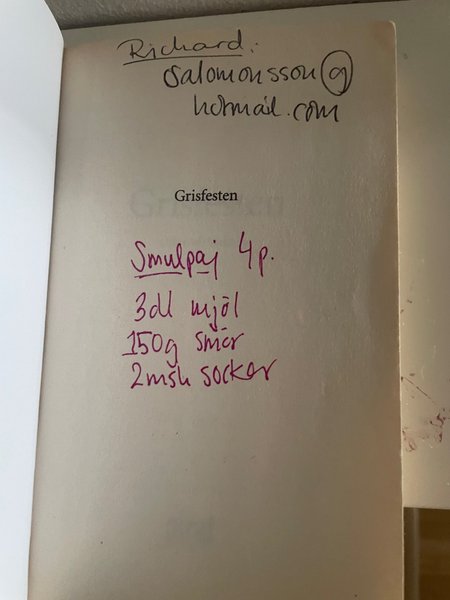 Richard:
salomonsson@
hotmail.com
Grisfesten
Smulpaj 4p.
3dl mjöl
150g smör
2msk socker